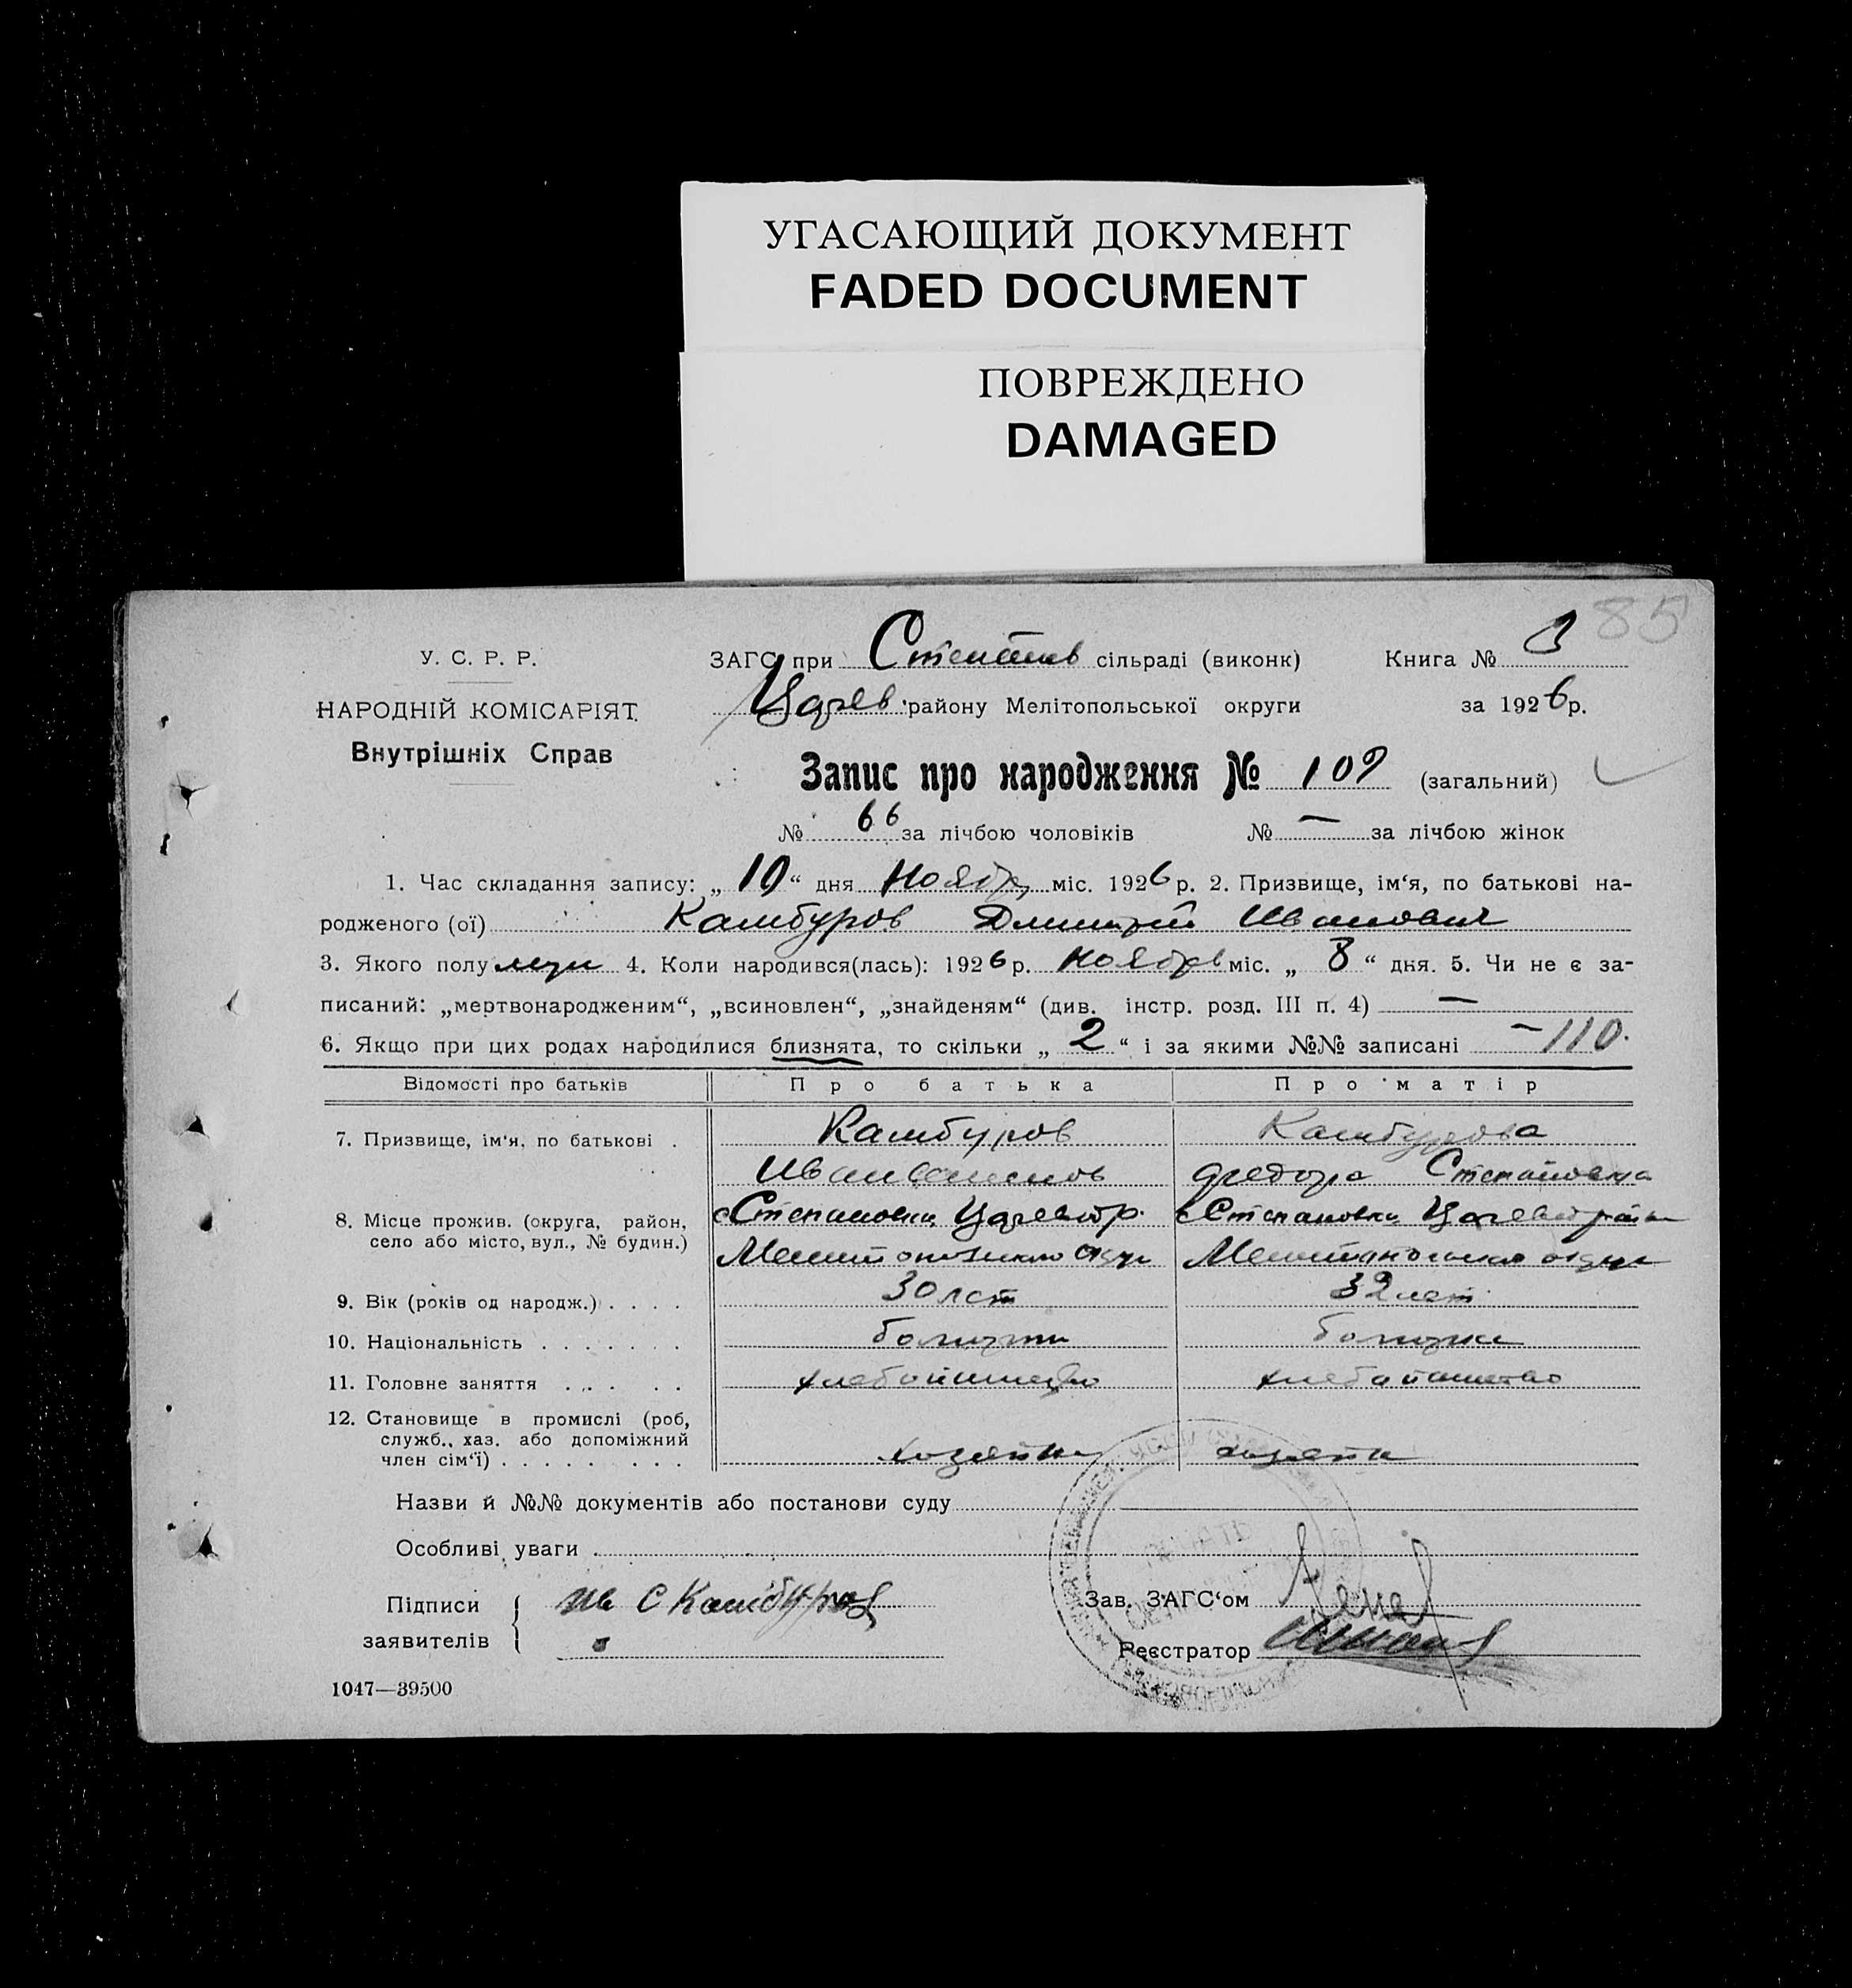 УГАСАЮЩИЙ ДОКУМЕНТ
FADED DOCUMENT
ПОВРЕЖДЕНО
DAMAGED
85
У. С. Р. Р.
НАРОДНІЙ КОМІСАРІЯТ
Внутрішніх Справ
ЗАГС при Степанов сільраді (виконк) Книга № 3
Царев району Мелітопольської округи за 1926 р.
Запис про народження № 109 (загальний)
№ 66 за лічбою чоловіків № — за лічбою жінок
1. Час складання запису: „10“ дня Ноября міс. 1926 р. 2. Призвище, ім‘я, по батькові на-
родженого (ої) Камбуров Дмитрий Иванович
3. Якого полу муж 4. Коли народився(лась): 1926 р. Ноября міс. „8“ дня. 5. Чи не є за-
писаний: „мертвонародженим“, „всиновлен“, „знайденям“ (див. інстр. розд. III п. 4) —
6. Якщо при цих родах народилися близнята, то скільки „2“ і за якими №№ записані —110.
Відомості про батьків Про батька Про матір
7. Призвище, ім‘я, по батькові . Камбуров Камбурова
Иван Степановна
8. Місце прожив. (округа, район, с Степановки Царевор. с Степановки
село або місто, вул., № будин.) Мелитопольского округ Мелитопольского округ
9. Вік (років од народж.) . . . . 30 лет 32 лет
10. Національність . . . . . . . болгарин болгарка
11. Головне заняття . . . . . хлебопашество хлебопашество
12. Становище в промислі (роб,
служб., хаз. або допоміжний
член сім‘ї) . . . . . . . . . хозяин
Назви й №№ документів або постанови суду
Особливі уваги
Підписи Камбуров Зав. ЗАГС‘ом
заявителів Реєстратор
1047—39500